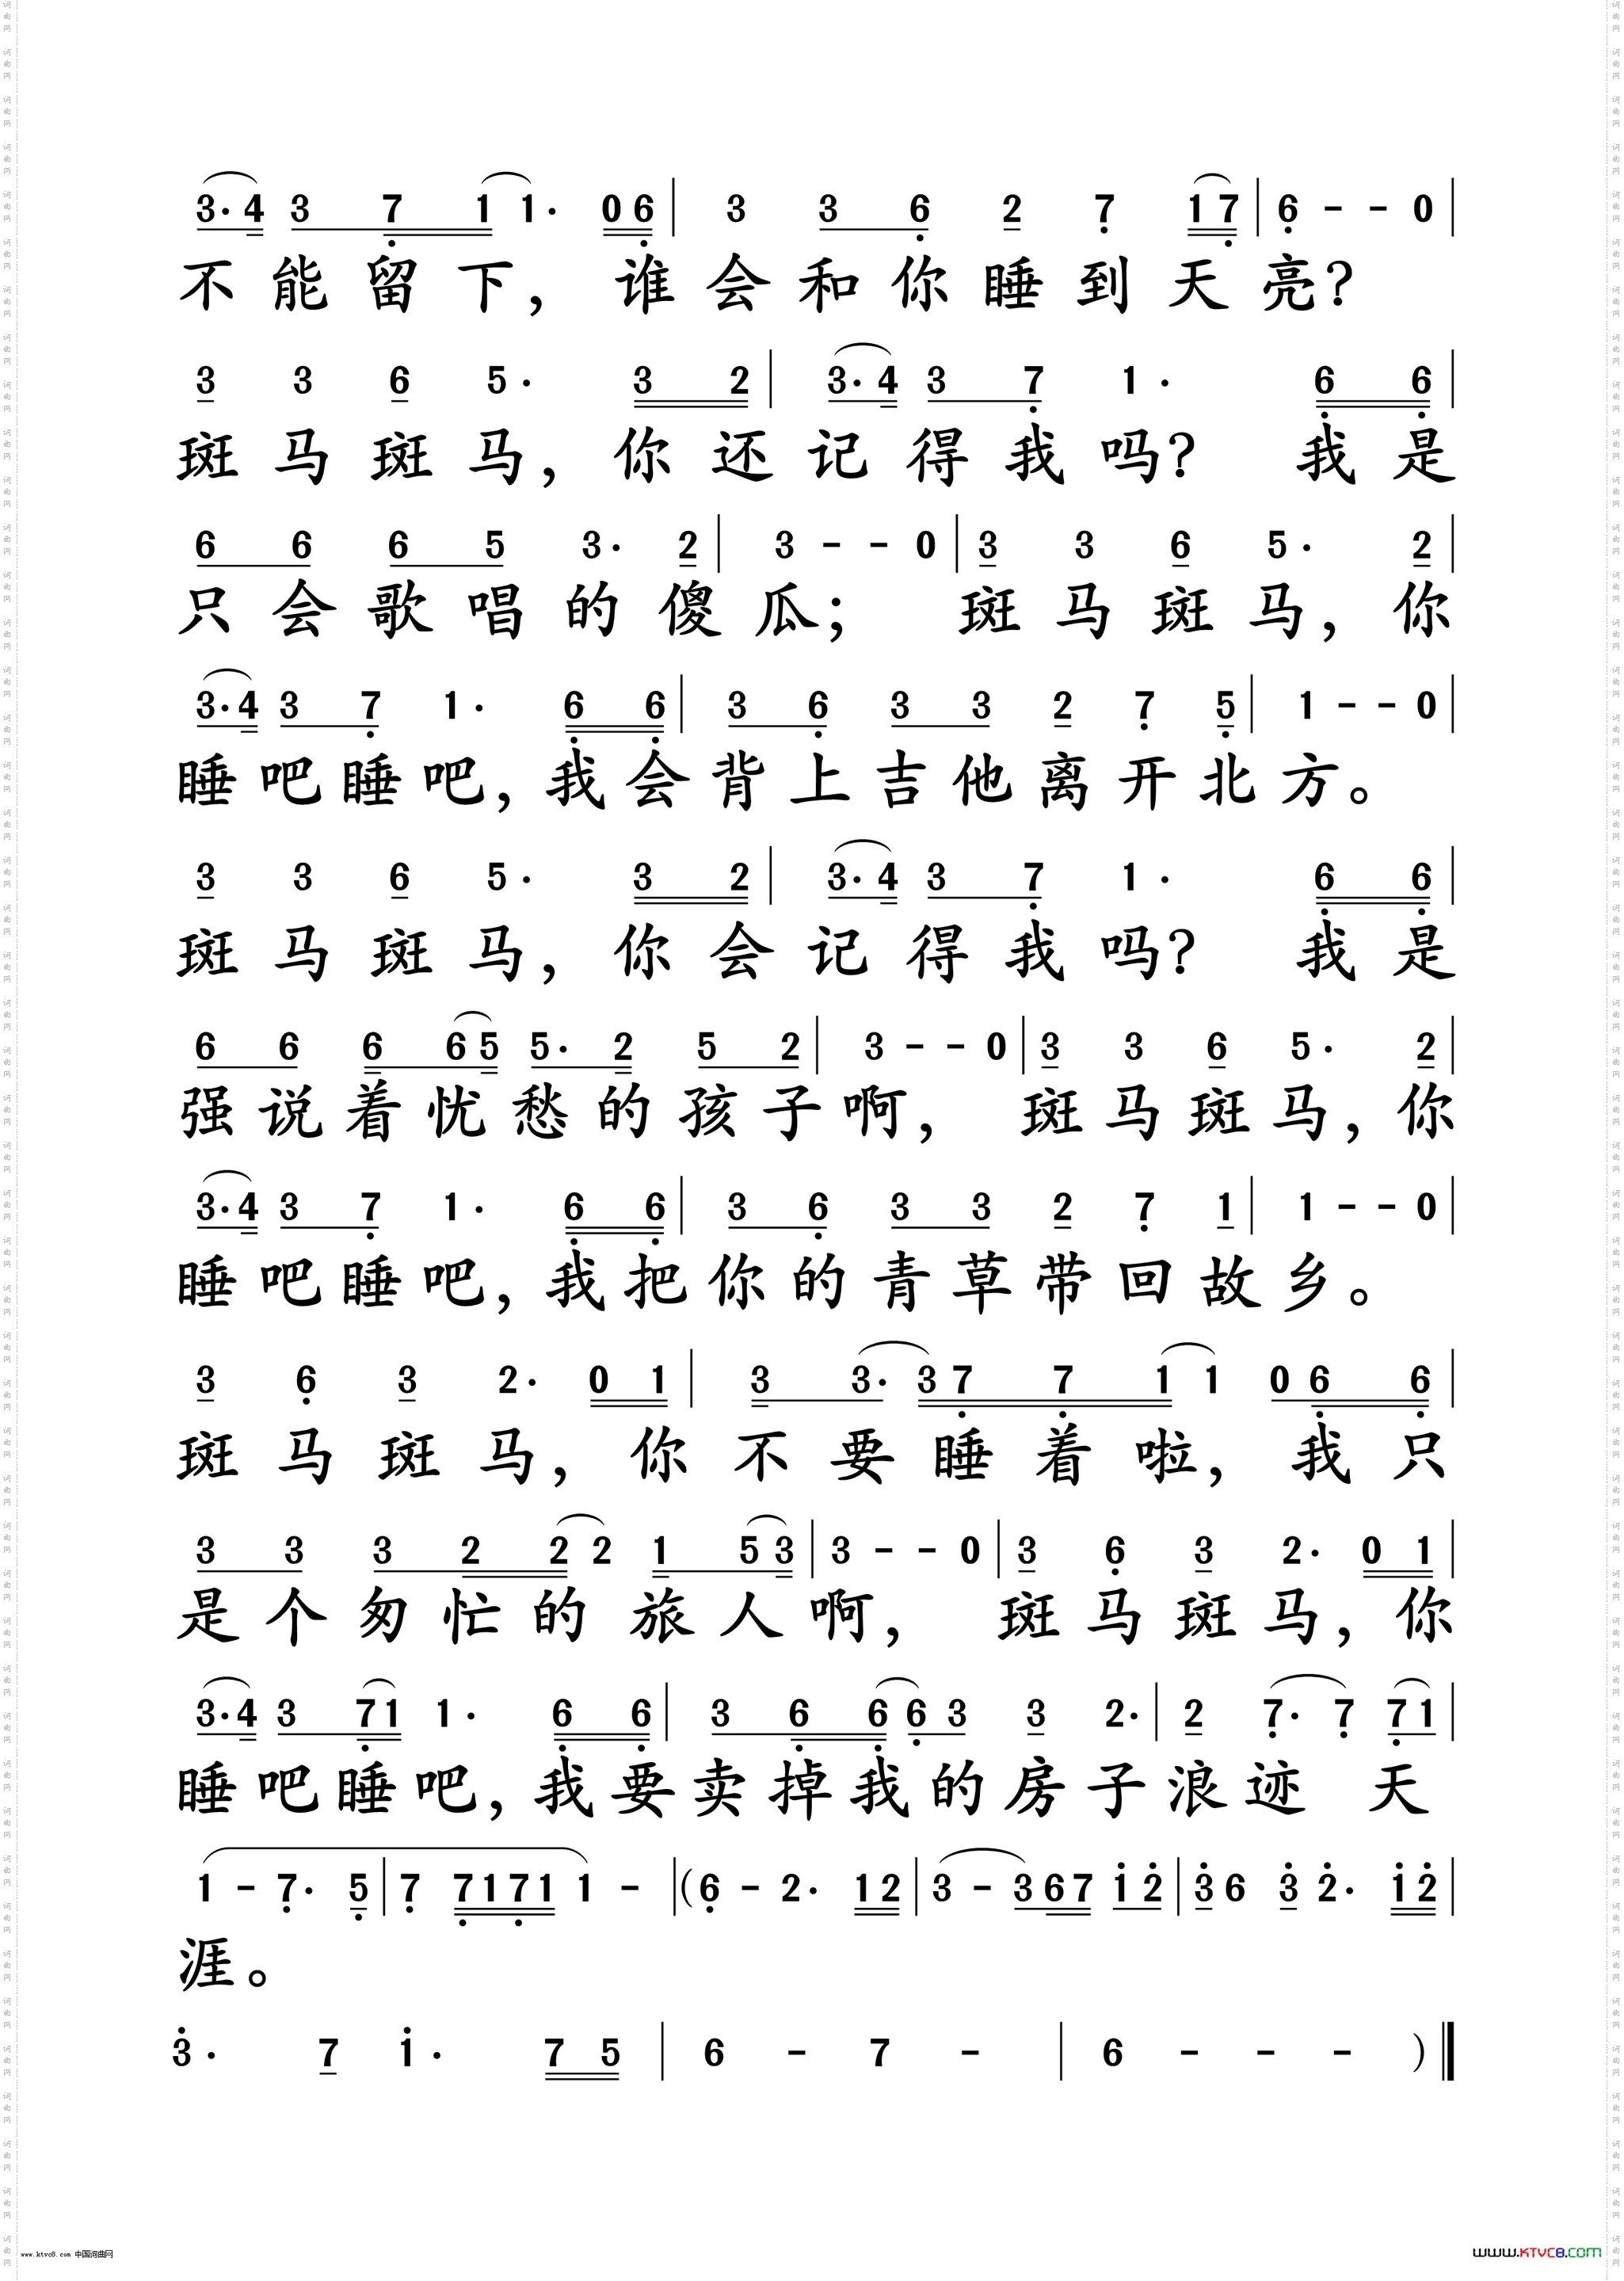 3·4 3 7 1 1· 0 6 | 3 3 6 2 7 1 7 | 6 - - 0 |
不能留下，谁会和你睡到天亮？
3 3 6 5· 3 2 | 3·4 3 7 1· 6 6 |
斑马斑马，你还记得我吗？ 我是
6 6 6 5 3· 2 | 3 - - 0 | 3 3 6 5· 2 |
只会歌唱的傻瓜； 斑马斑马，你
3·4 3 7 1· 6 6 | 3 6 3 3 2 7 5 | 1 - - 0 |
睡吧睡吧，我会背上吉他离开北方。
3 3 6 5· 3 2 | 3·4 3 7 1· 6 6 |
斑马斑马，你会记得我吗？ 我是
6 6 6 6 5 5· 2 5 2 | 3 - - 0 | 3 3 6 5· 2 |
强说着忧愁的孩子啊， 斑马斑马，你
3·4 3 7 1· 6 6 | 3 6 3 3 2 7 1 | 1 - - 0 |
睡吧睡吧，我把你的青草带回故乡。
3 6 3 2· 0 1 | 3 3· 3 7 7 1 1 0 6 6 |
斑马斑马，你不要睡着啦，我只
3 3 3 2 2 2 1 5 3 | 3 - - 0 | 3 6 3 2· 0 1 |
是个匆忙的旅人啊， 斑马斑马，你
3·4 3 7 1 1· 6 6 | 3 6 6 6 3 3 2· | 2 7· 7 7 1 |
睡吧睡吧，我要卖掉我的房子浪迹 天
1 - 7· 5 | 7 7 1 7 1 1 - | (6 - 2· 1 2 | 3 - 3 6 7 1 2 | 3 6 3 2· 1 2 |
涯。
3· 7 1· 7 5 | 6 - 7 - | 6 - - - )
www.ktvc8.com 中国词曲网
WWW.KTVC8.COM